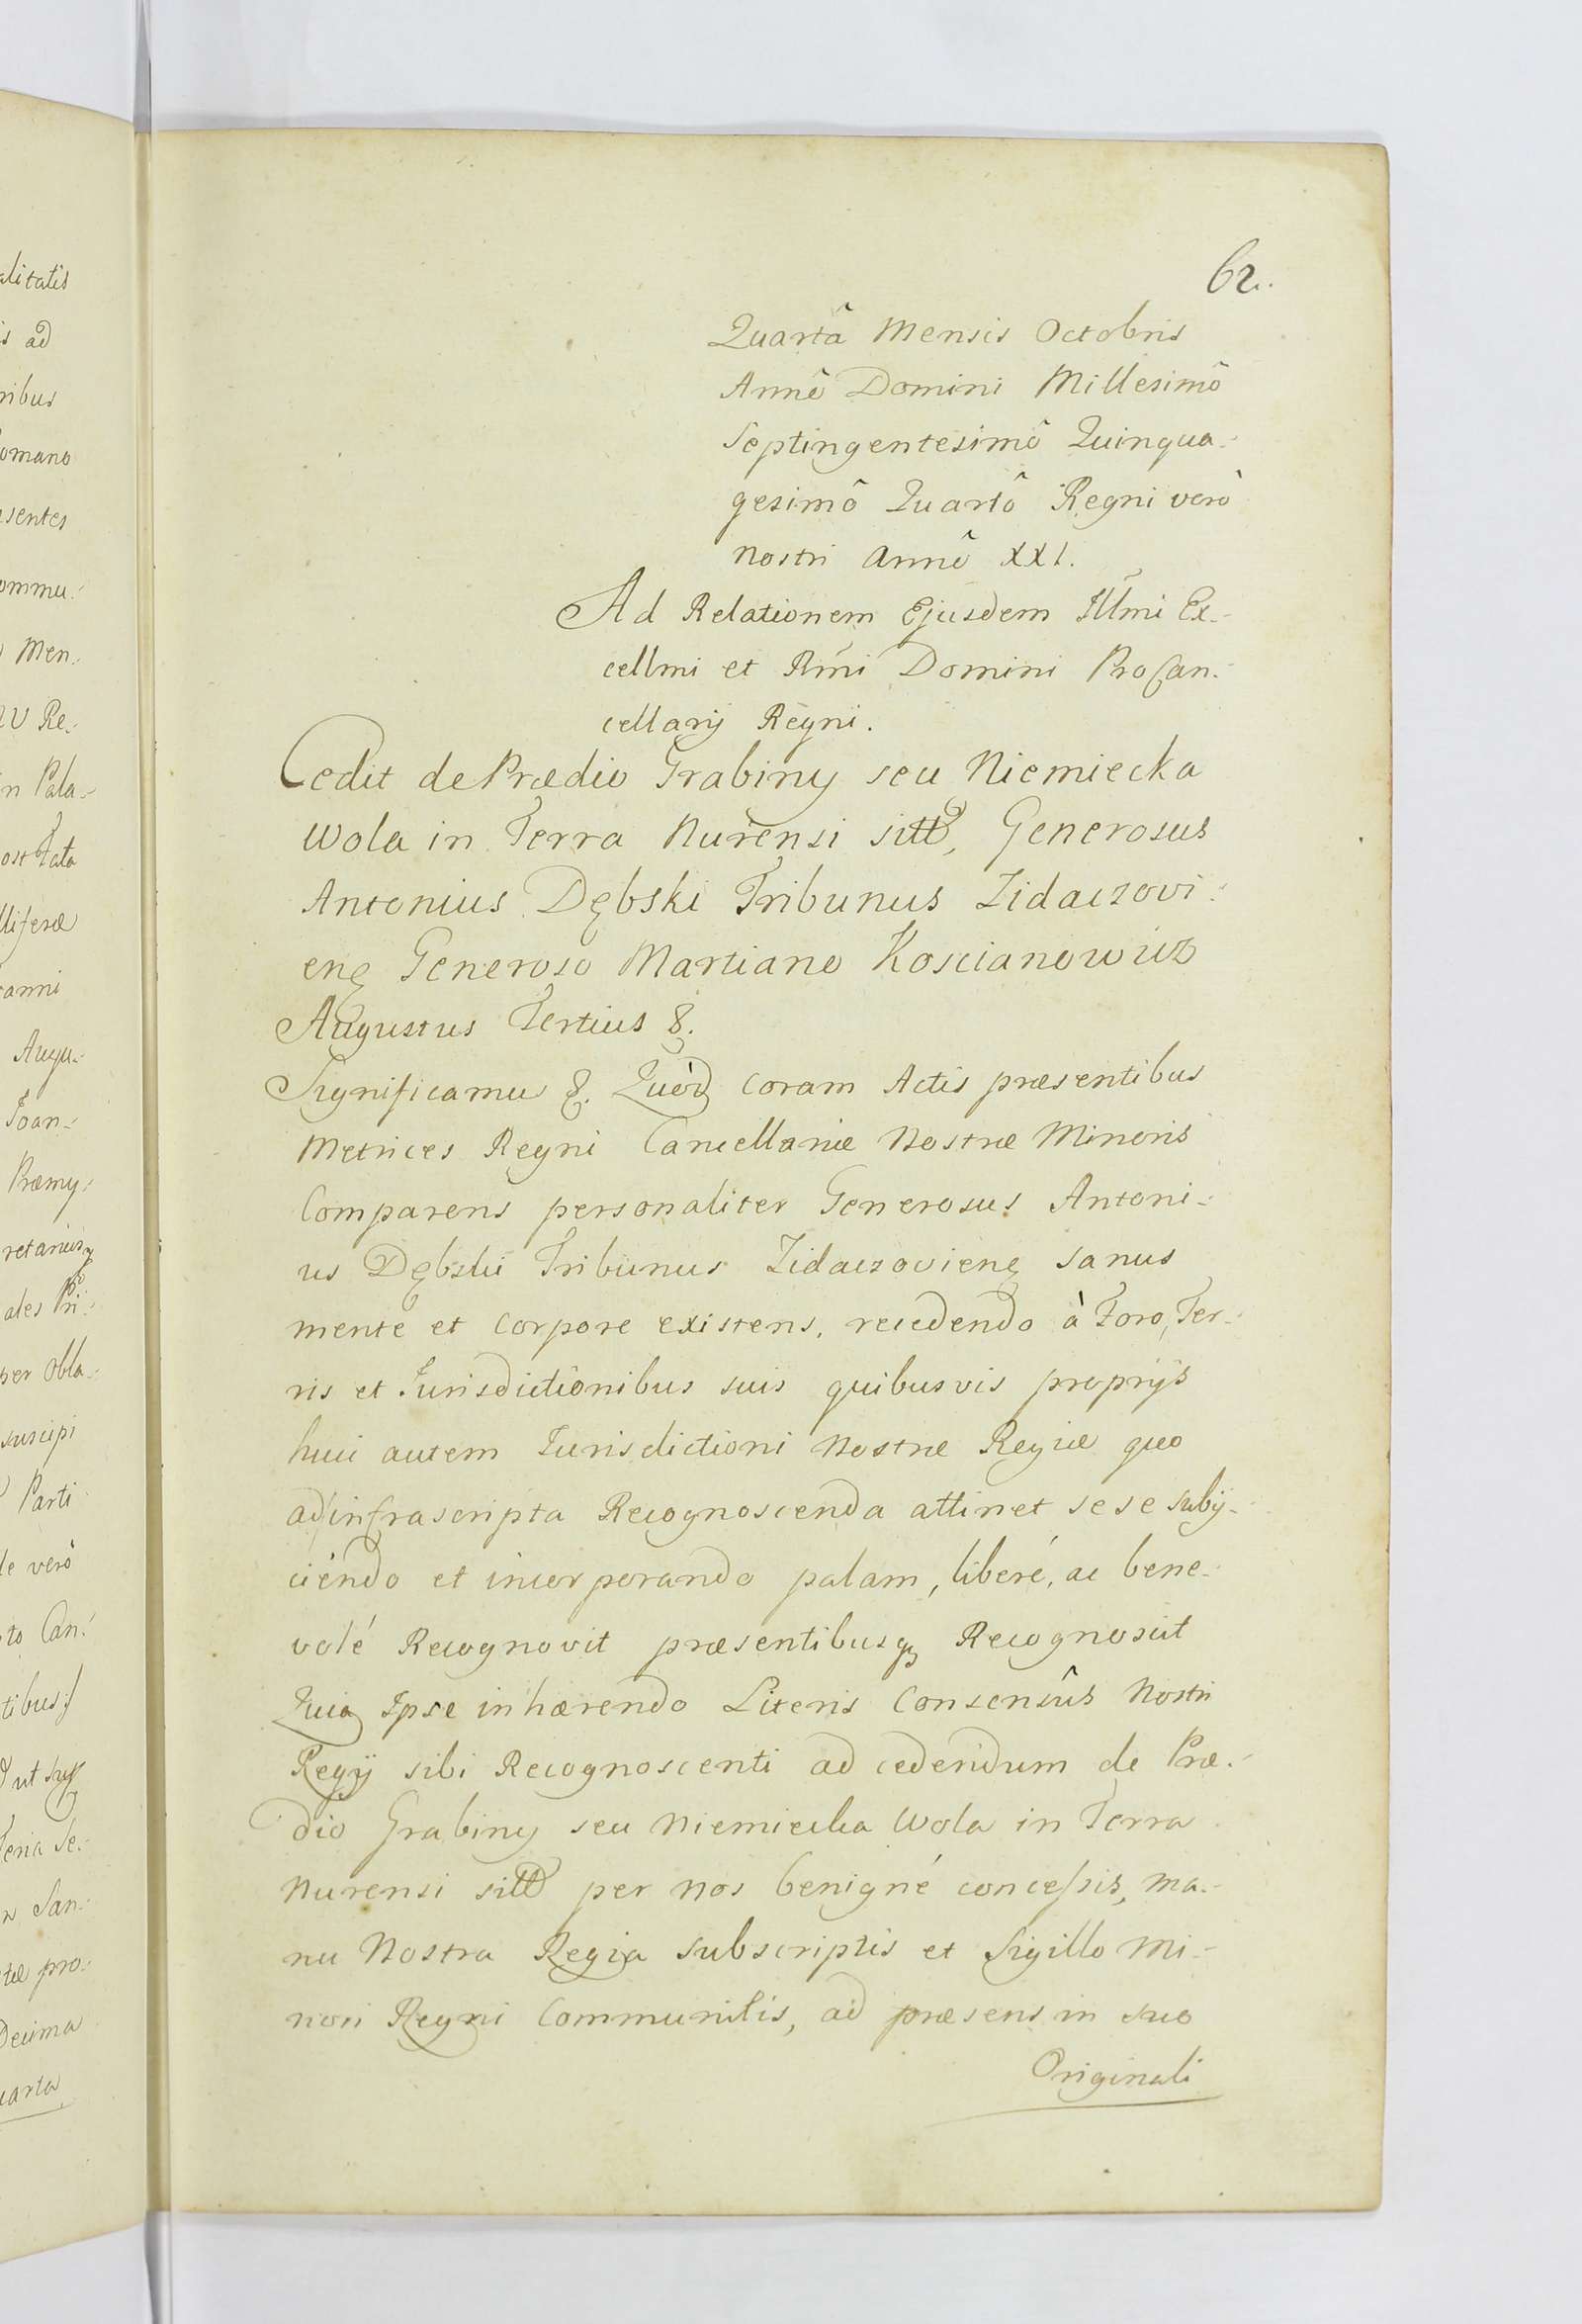 62.
Quartâ Mensis Octobris
Annô Domini Millesimô
Septingentesimô Quinqua-
gesimô Quartô Regni verò
nostri Annô XXI.
Ad Relationem Ejusdem Illmi Ex-
cellmi et Rmi Domini ProCan-
cellarij Regni.
Cedit de Prædio Grabiny seu Niemiecka
Wola in Terra Nurensi sitto, Generosus
Antonius Dębski Tribunus Zidaczovi-
enę Generoso Martiano Koscianowicz
Augustus Tertius &.
Significamu &. Quòd coram Actis præsentibus
Metrices Regni Cancellariæ Nostræ Minoris
Comparens personaliter Generosus Antoni-
us Dębski Tribunus Zidaczovienę sanus
mente et corpore existens, recedendo à Foro, Ter-
ris et Jurisdictionibus suis quibusvis proprijs
huic autem Jurisdictioni Nostræ Regiæ quo
ad infrascripta Recognoscenda attinet sese subij-
ciendo et incorporando palam, liberé, ac bene-
volé Recognovit præsentibusq Recognoscit
Quia Ipse inhærendo Literis Consensûs Nostri
Regij sibi Recognoscenti ad cedendum de Præ-
dio Grabiny seu Niemiecka Wola in Terra
Nurensi sitto per nos benigné concessis, ma-
nu Nostra Regia subscriptis et Sigillo Mi-
nori Regni Communitis, ad præsens in suo
Originali